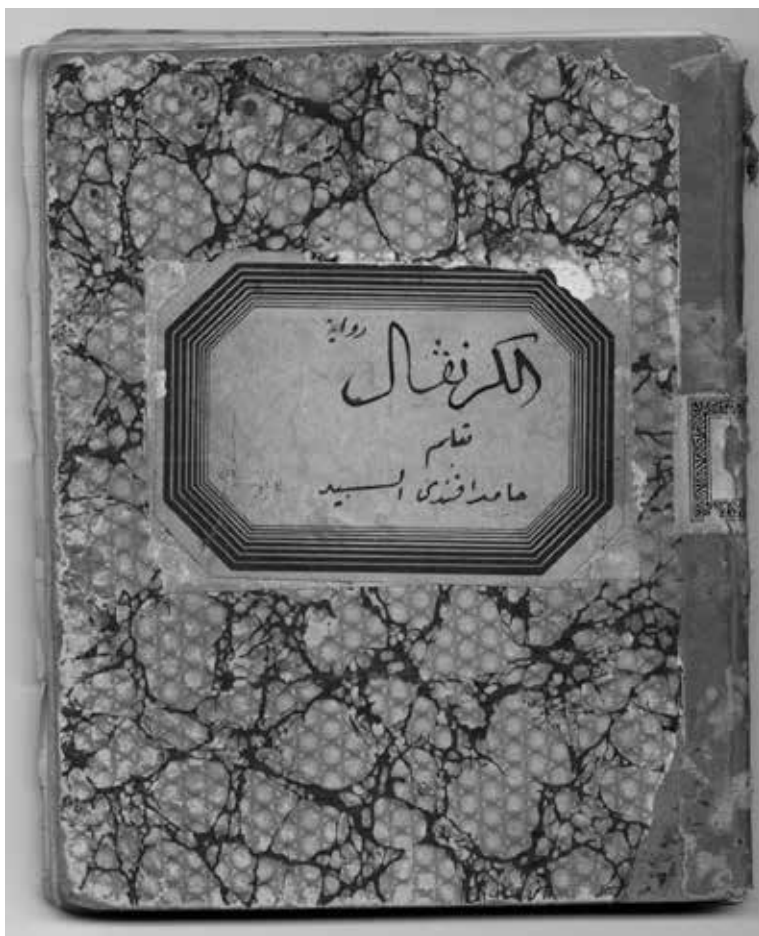 رواية
الكرنڤال
بقلم
حامد افندى السيد